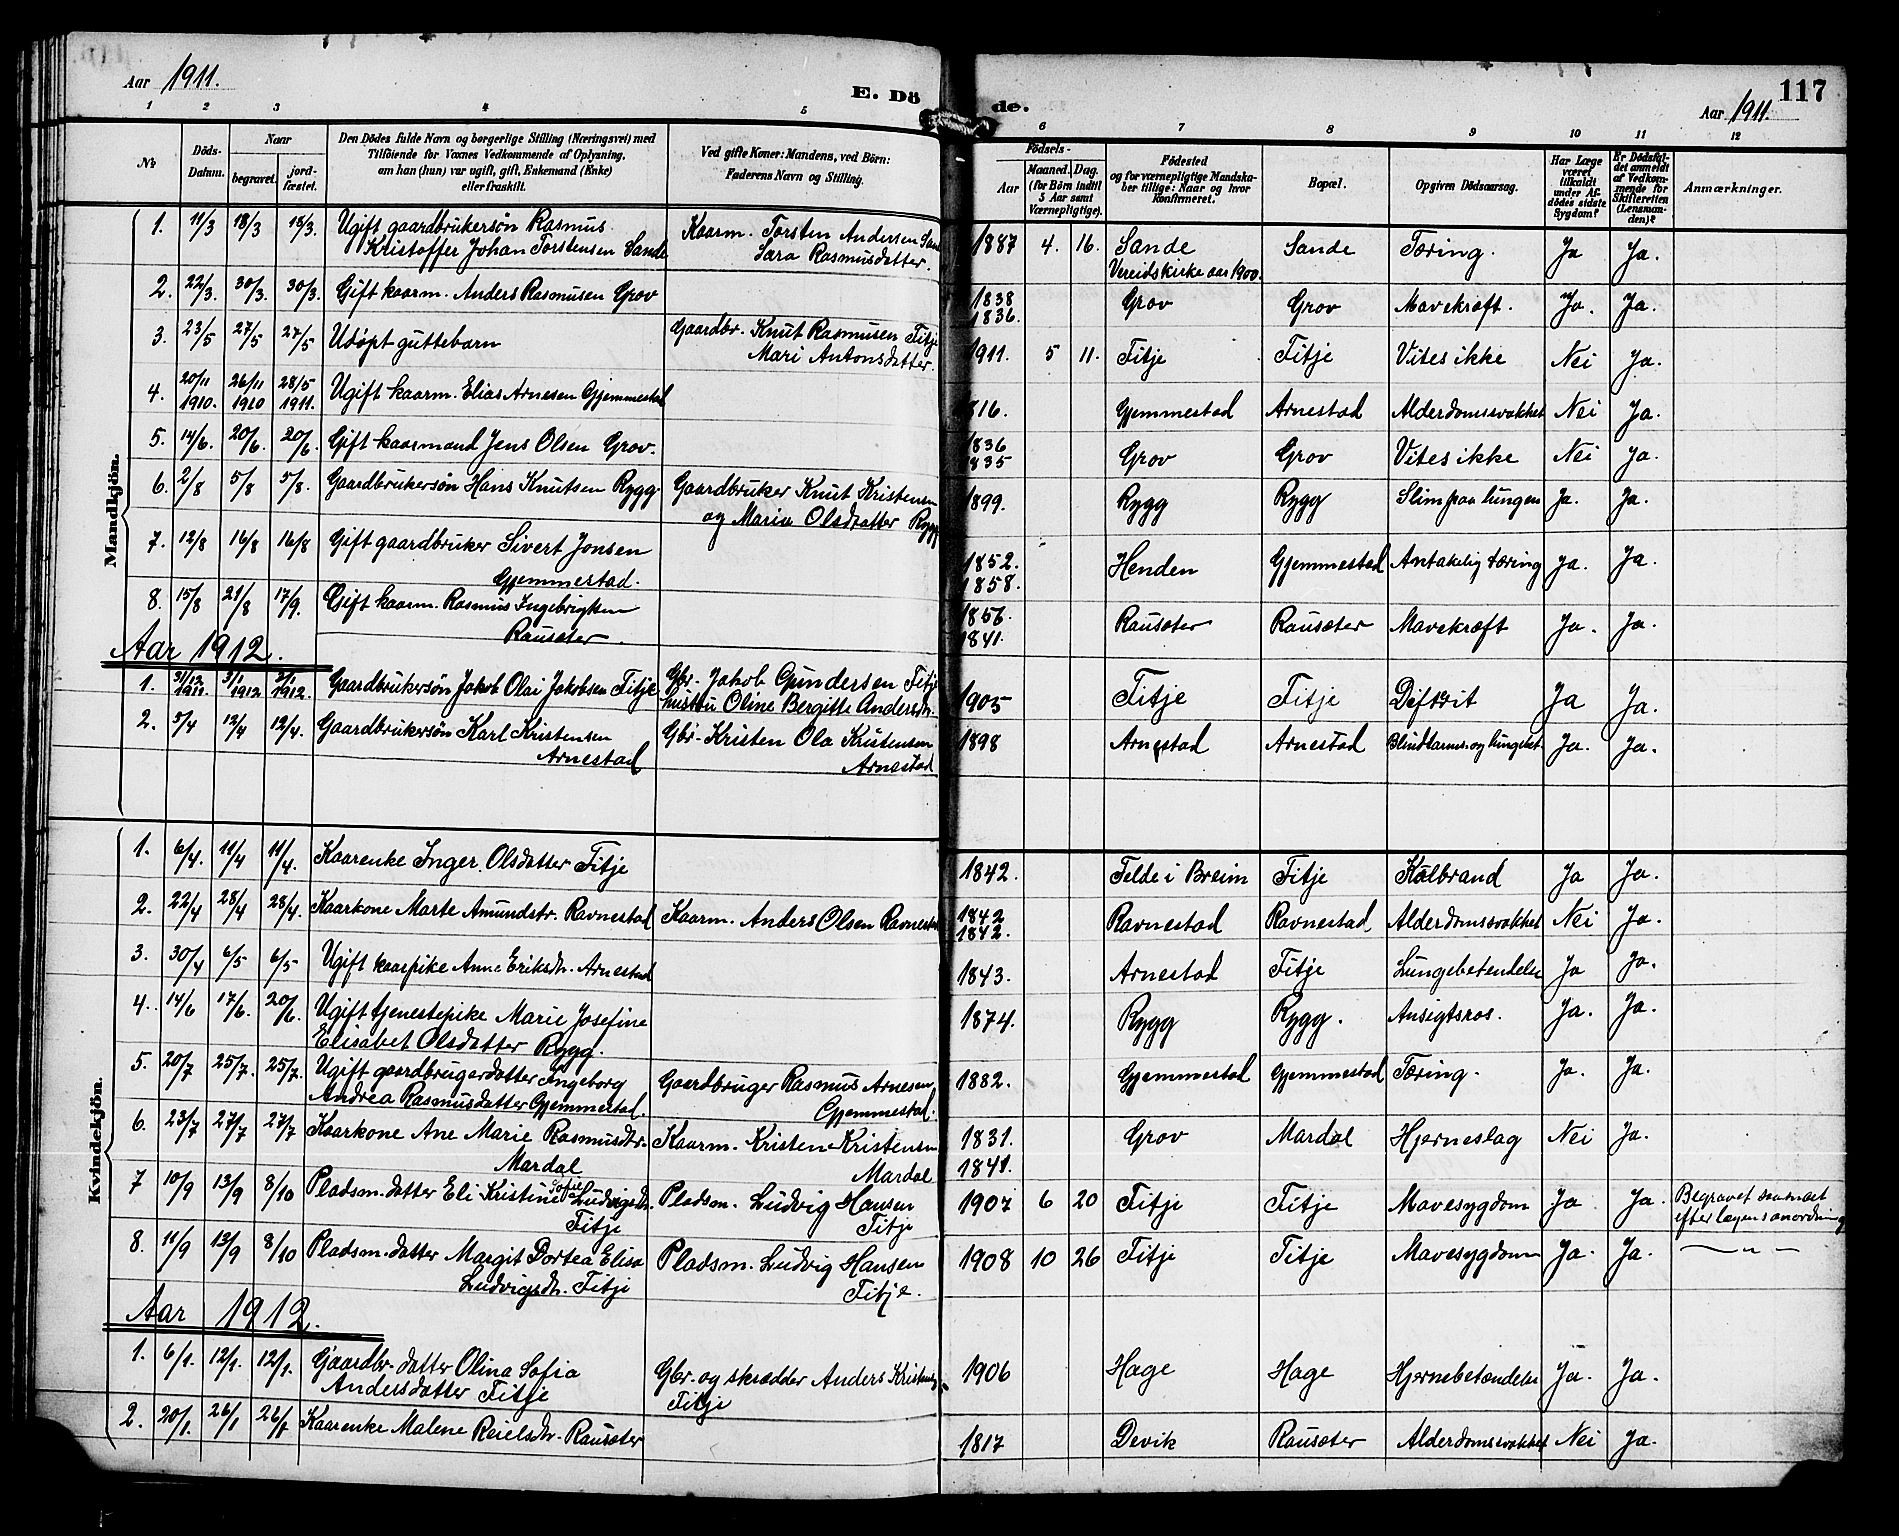 Aar 1911.
E. Dö de.
117
Aar 1911.
1 2 3 4 5 6 7 8 9 10 11 12
No
Döds-Datum.
Naar
begravet.
jord-fæstet.
Den Dödes fulde Navn og borgerlige Stilling (Næringsvei) med
Tilföiende for Voxnes Vedkommende af Oplysning,
om han (hun) var ugift, gift, Enkemand (Enke)
eller fraskilt.
Ved gifte Koner: Mandens, ved Börn:
Faderens Navn og Stilling.
Födsels-
Aar
Maaned. Dag.
(for Börn indtil
5 Aar samt
Værnepligtige).
Födested
og for værnepligtige Mandska-
ber tillige: Naar og hvor
konfirmeret.
Bopæl.
Opgiven Dödsaarsag.
Har Læge
været
tilkaldt
under Af-
dödes sidste
Sygdom?
Er Dödsfal-
det anmeldt
af Vedkom-
mende for
Skifteretten
(Lensman-
den)?
Anmærkninger.
Mandkjön.
1. 11/3 18/3 18/3. Ugift gaardbrukersön Rasmus Kaarm. Torsten Andersen Sande 1887 4. 16. Sande Sande Tæring. Ja Ja.
Kristoffer Johan Torstensen Sande Sara Rasmusdatter. Vereidskirke aar 1900.
2. 22/3. 30/3. 30/3. Gift kaarm. Anders Rasmusen Grov 1838 Grov Grov Mavekræft. Ja. Ja.
1836.
3. 23/5 27/5 27/5 Udöpt guttebarn Gaardbr. Knut Rasmusen Fitje 1911. 5 11. Fitje Fitje Vites ikke Nei Ja.
Mari Antonsdatter.
4. 20/11 1910. 26/11 1910 28/5 1911. Ugift kaarm. Elias Arnesen Gjemmestad 1816. Gjemmestad Arnestad Alderdomssvakhet Nei Ja.
5. 14/6. 20/6. 20/6. Gift kaarmand Jens Olsen Grov. 1836 Grov Grov Vites ikke Nei Ja.
1835
6. 2/8 5/8 5/8. Gaardbrukersön Hans Knutsen Rygg Gaardbruker Knut Kristensen 1899. Rygg Rygg Slim paa lungen Ja. Ja.
og Maria Olsdatter Rygg
7. 12/8 16/8 16/8 Gift gaardbruker Sivert Jonsen 1852. Henden Gjemmestad Antakelig tæring Ja. Ja.
Gjemmestad. 1858.
8. 15/8 21/8 17/9. Gift kaarm. Rasmus Ingebrigtsen 1856. Rausæter Rausæter Mavekræft Ja. Ja.
Rausæter. 1841.
Aar 1912.
1. 31/12 1911. 3/1 1912 3/1 1912. Gaardbrukersön Jakob Olai Jakobsen Fitje Gbr. Jakob Gundersen Fitje 1905 Fitje Fitje Diftrit Ja Ja.
hustru Oline Bergitte Andersdr.
2. 5/4 12/4 12/4. Gaardbrukersön Karl Kristensen Gbr. Kristen Ola Kristensen 1898 Arnestad Arnestad Blindtarms. og lungebet. Ja. Ja.
Arnestad Arnestad
Kvindekjön.
1. 6/4. 11/4 11/4. Kaarenke Inger Olsdatter Fitje 1842. Felde i Breim Fitje Kolbrand Ja Ja.
2. 22/4 28/4 28/4. Kaarkone Marte Amundstr. Ravnestad Kaarm. Anders Olsen Ravnestad 1842 Ravnestad Ravnestad Alderdomssvakhet Nei Ja.
1842.
3. 30/4 6/5 6/5 Ugift kaarpike Anne Eriksdtr. Arnestad 1843. Arnestad Fitje Lungebetendelse Ja Ja.
4. 14/6 17/6. 20/6. Ugift tjenestepike Marie Josefine 1874. Rygg Rygg. Ansigtsros. Ja. Ja.
Elisabet Olsdatter Rygg.
5. 20/7 25/7. 25/7. Ugift gaardbrugerdatter Ingeborg Gaardbruger Rasmus Arnesen 1882. Gjemmestad Gjemmestad Tæring. Ja. Ja.
Andrea Rasmusdatter Gjemmestad. Gjemmestad.
6. 23/7 27/7 27/7 Kaarkone Ane Marie Rasmusdtr. Kaarm. Kristen Kristensen 1831. Grov Mardal Hjerneslag Nei Ja.
Mardal Mardal 1841.
7 10/9 13/9 8/10 Pladsm. datter Eli Kristine Sofie Ludvigsdr. Pladsm. Ludvig Hansen 1907 6 20 Fitje Fitje Mavesygdom Ja Ja. Begravet saasnart
Fitje Fitje efter lægens anordning
8. 11/9 13/9 8/10 Pladsm. datter Margit Dortea Elisa Pladsm. Ludvig Hansen 1908 10 26 Fitje Fitje Mavesygdom Ja. Ja. — " —
Ludvigsdr. Fitje Fitje.
Aar 1912.
1. 6/1. 12/1. 12/1. Gaardbr. datter Olina Sofia Gbr. og skrædder Anders Kristensen 1906 Hage Hage Hjernebetændelse Ja. Ja.
Andersdatter Fitje Fitje
2. 20/1. 26/1 26/1 Kaarenke Malene Reielsdr. Rausæter 1817 Devik Rausæter Alderdomssvakhet Nei Ja.